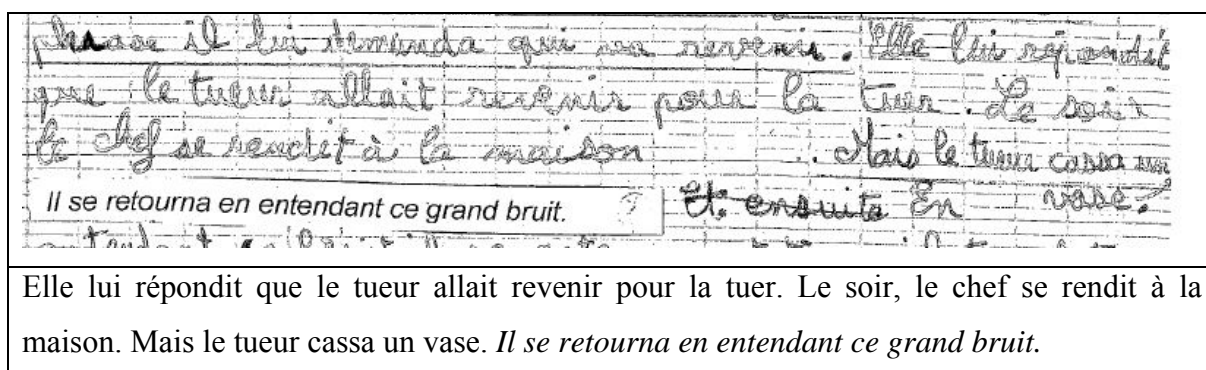 phrase il lui demanda qui va revenir. Elle lui répondit
que le tueur allait revenir pour la tuer. Le soir
le chef se rendit à la maison . Mais le tueur cassa un
vase.
Il se retourna en entendant ce grand bruit. ? Et ensuite En
Elle lui répondit que le tueur allait revenir pour la tuer. Le soir, le chef se rendit à la
maison. Mais le tueur cassa un vase. Il se retourna en entendant ce grand bruit.